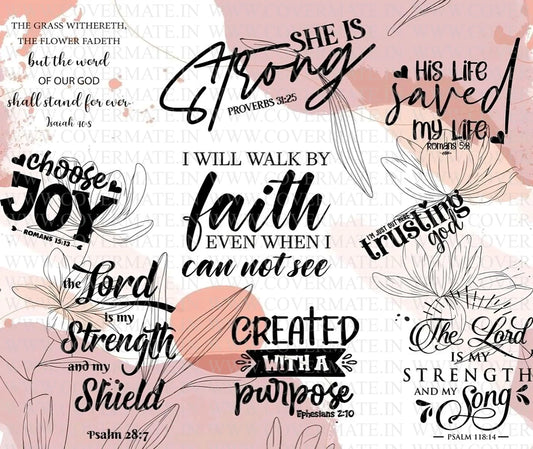 THE GRASS WITHERETH,
THE FLOWER FADETH
but the word
OF OUR GOD
shall stand for ever.
Isaiah 40:8
SHE IS
Strong
PROVERBS 31:25
HIS LIFE
saved
my LIFE
Romans 5:8
choose
JOY
ROMANS 15:13
I WILL WALK BY
faith
EVEN WHEN I
can not see
I'M JUST OUT HERE
trusting
god
the Lord
is my
Strength
and my
Shield
Psalm 28:7
CREATED
WITH A
purpose
Ephesians 2:10
The Lord
IS MY
STRENGTH
AND MY
Song
PSALM 118:14
WWW.COVERMATE.IN